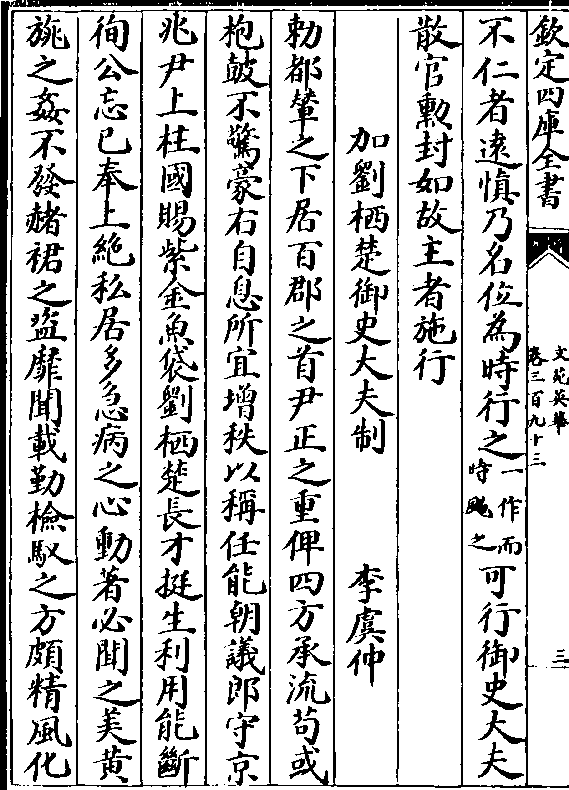 欽定四庫全書
文苑英華
卷三百九十三
三
不仁者遠慎乃名位為時行之一作而時颺之可行御史大夫
散官勲封如故主者施行
加劉栖楚御史大夫制 李虞仲
勅都輦之下居百郡之首尹正之重俾四方承流苟或
枹鼓不驚豪右自息所宜增秩以稱任能朝議郎守京
兆尹上柱國賜紫金魚袋劉栖楚長才挺生利用能斷
徇公忘已奉上絶私居多急病之心動著必聞之美黄
旐之姦不發赭裙之盜靡聞載勤檢馭之方頗精風化